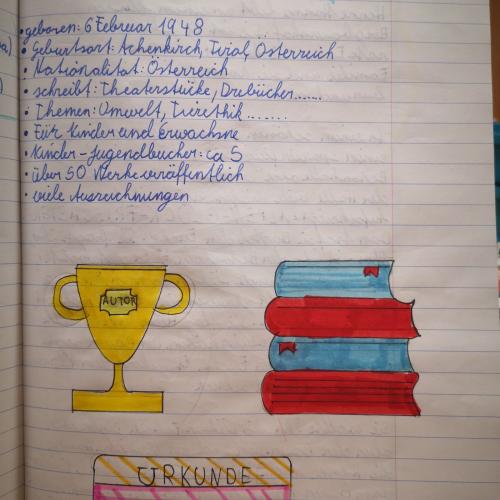 • geboren: 6 Februar 1948
• Geburtsort: Achenkirch, Tirol, Österreich
• Nationalität: Österreich
• schreibt: Theaterstücke, Drebücher......
• Themen: Umwelt, Tierethik........
• Für Kinder und Erwachsne
• Kinder-Jugendbücher: ca 5
• über 50 Werke veröffentlich
• viele Auszeichnungen
AUTOR
URKUNDE